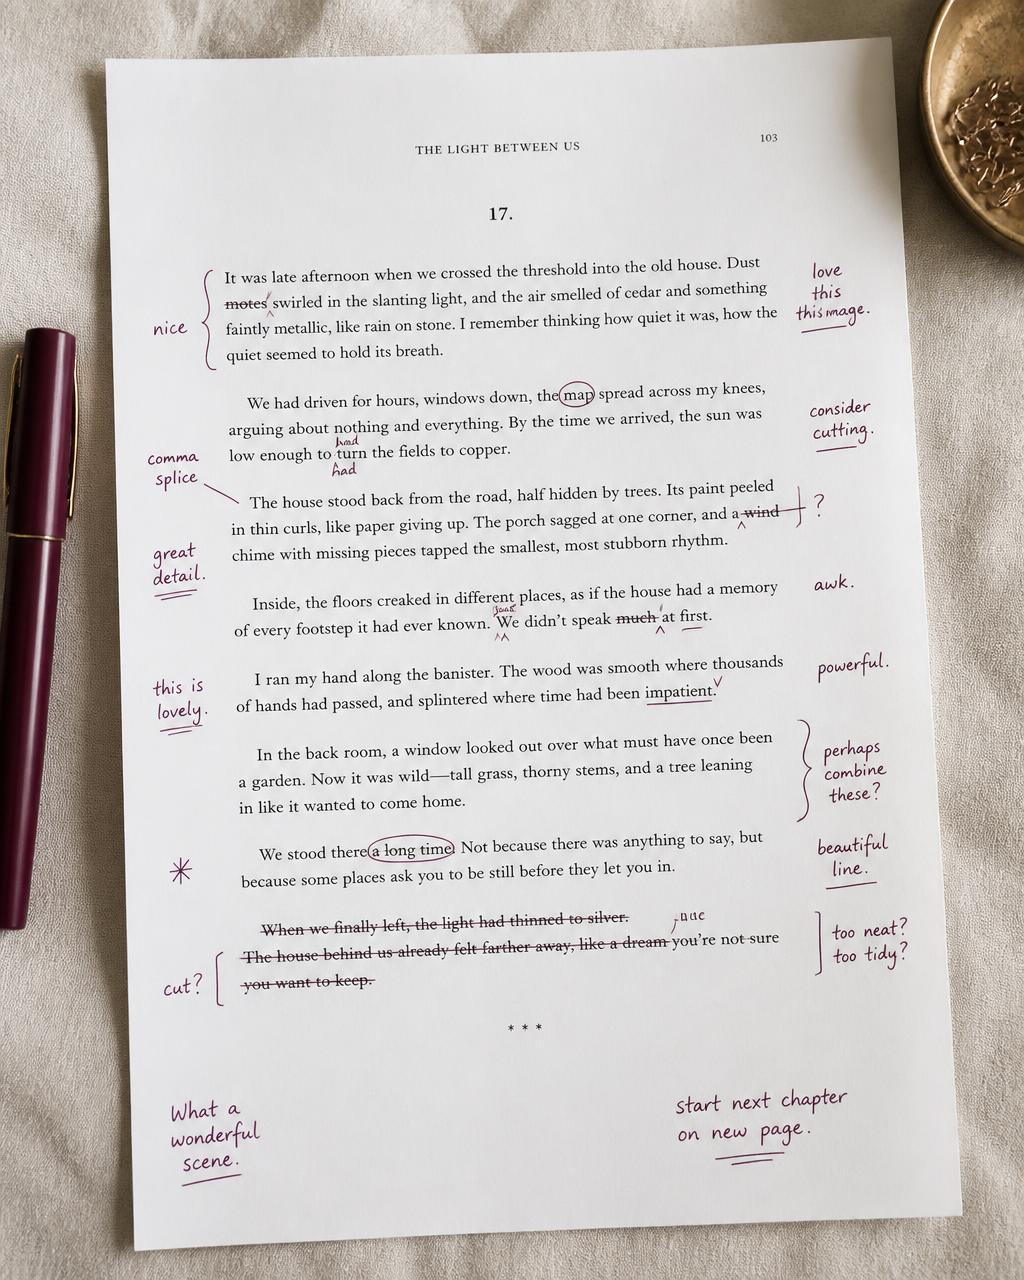 THE LIGHT BETWEEN US
103
17.
nice
It was late afternoon when we crossed the threshold into the old house. Dust
motes swirled in the slanting light, and the air smelled of cedar and something
faintly metallic, like rain on stone. I remember thinking how quiet it was, how the
quiet seemed to hold its breath.
love
this
this image.
We had driven for hours, windows down, the map spread across my knees,
arguing about nothing and everything. By the time we arrived, the sun was
low enough to turn the fields to copper.
had
consider
cutting.
comma
splice
The house stood back from the road, half hidden by trees. Its paint peeled
in thin curls, like paper giving up. The porch sagged at one corner, and a wind
chime with missing pieces tapped the smallest, most stubborn rhythm.
?
great
detail.
Inside, the floors creaked in different places, as if the house had a memory
of every footstep it had ever known. We didn’t speak much at first.
awk.
this is
lovely.
I ran my hand along the banister. The wood was smooth where thousands
of hands had passed, and splintered where time had been impatient.
powerful.
In the back room, a window looked out over what must have once been
a garden. Now it was wild—tall grass, thorny stems, and a tree leaning
in like it wanted to come home.
perhaps
combine
these?
We stood there a long time. Not because there was anything to say, but
because some places ask you to be still before they let you in.
beautiful
line.
cut?
When we finally left, the light had thinned to silver.
The house behind us already felt farther away, like a dream you’re not sure
you want to keep.
too neat?
too tidy?
* * *
What a
wonderful
scene.
start next chapter
on new page.